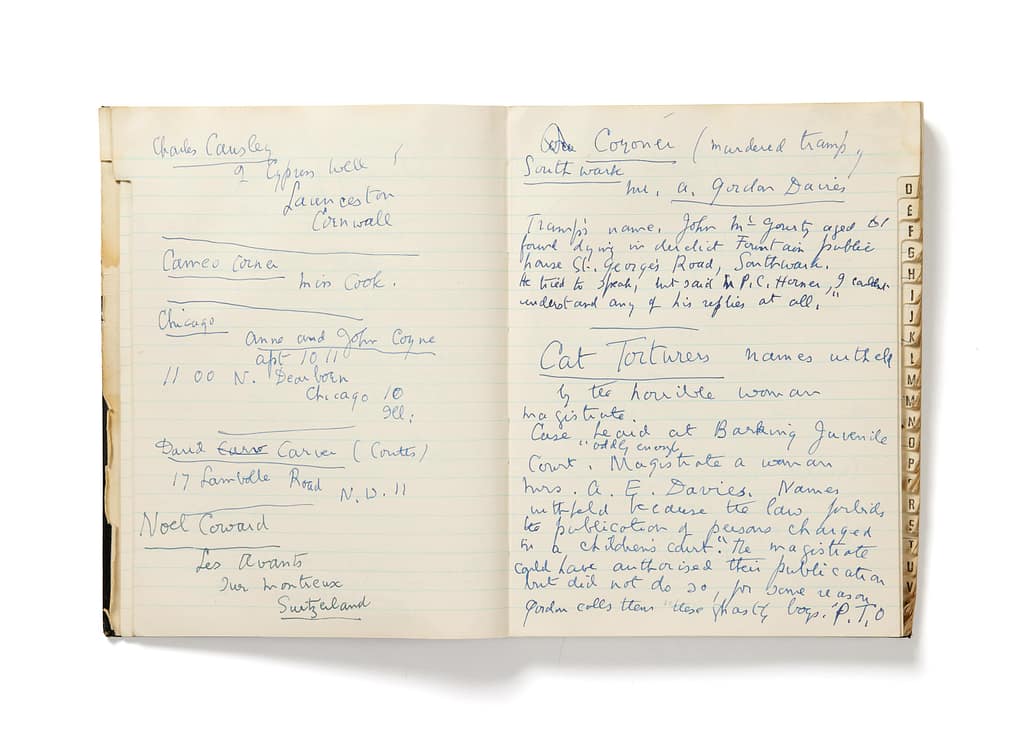 Charles Causley
2 Cypress Well
Launceston
Cornwall
Cameo Corner
Miss Cook.
Chicago
Anne and John Coyne
apt 1011
1100 N. Dearborn
Chicago 10
Ill.
David Carver (Coutts)
17 Lambolle Road
N.W. 11
Noel Coward
Les Avants
Sur Montreux
Switzerland
Coroner (murdered tramp,
Southwark
Mr. A. Gordon Davies
Tramp's name, John Mc Gourty aged 61
found dying in derelict Fountain public
house St. George's Road, Southwark.
He tried to speak, but said P.C. Horner, "I couldn't
understand any of his replies at all."
Cat Torturers names witheld
by the horrible woman
magistrate.
Case heard at Barking Juvenile
"oddly enough
Court. Magistrate a woman
Mrs. A. E. Davies. Names
withheld because the law forbids
the publication of persons charged
in a children's court." The magistrate
could have authorised their publication
but did not do so, for some reason
Gordon calls them "these ghastly boys." P.T.O
D
E
F
G
H
I
J
K
L
M
M
N
O
P
R
S
T
U
V